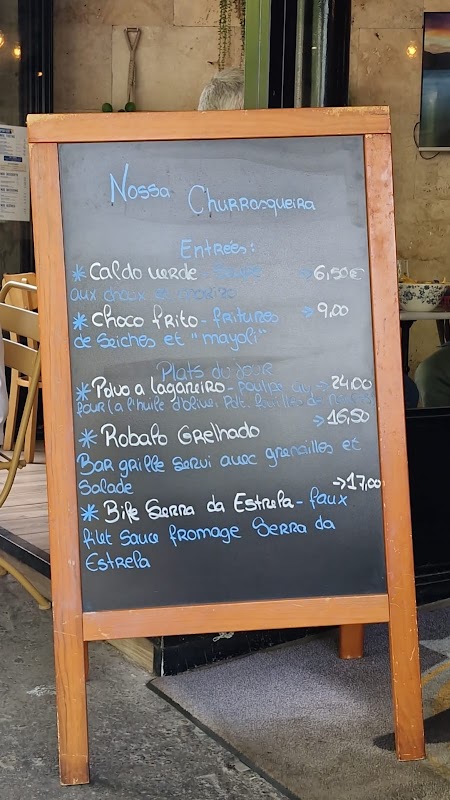 Nossa Churrasqueira
Entrées:
* Caldo verde - soupe → 6,50€
aux choux et chorizo
* Choco frito - fritures → 9,00
de seiches et "mayoli"
Plats du jour
* Polvo a lagareiro - poulpe au → 24,00
four (a l'huile d'olive, Pdt,
→ 16,50
* Robalo Grelhado
Bar grillé servi avec grenailles et
salade
→ 17,00
* Bife Serra da Estrela - faux
filet sauce fromage Serra da
Estrela